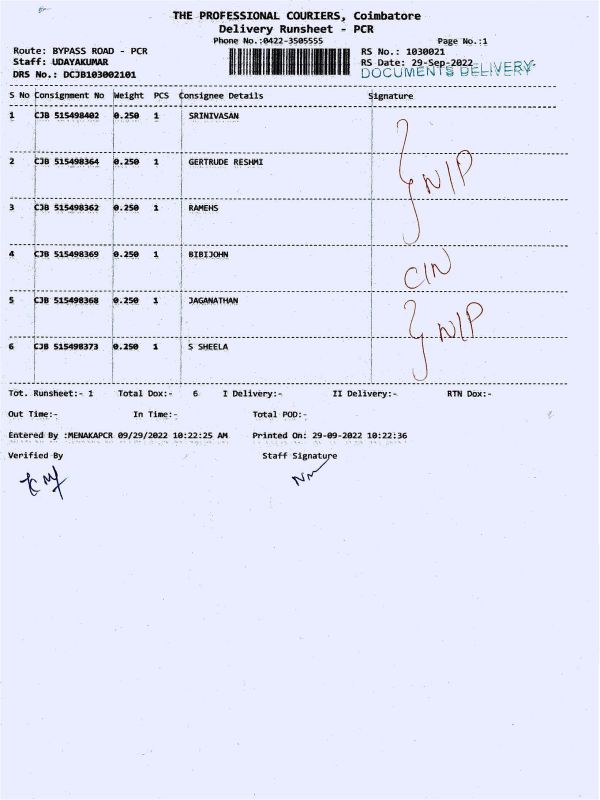 THE PROFESSIONAL COURIERS, Coimbatore
Delivery Runsheet - PCR
Phone No.:0422-3505555 Page No.:1
Route: BYPASS ROAD - PCR RS No.: 1030021
Staff: UDAYAKUMAR RS Date: 29-Sep-2022
DRS No.: DCJB103002101 DOCUMENTS DELIVERY
S No Consignment No Weight PCS Consignee Details Signature
1 CJB 515498402 0.250 1 SRINIVASAN
2 CJB 515498364 0.250 1 GERTRUDE RESHMI N/P
3 CJB 515498362 0.250 1 RAMEHS
4 CJB 515498369 0.250 1 BIBIJOHN C/N
5 CJB 515498368 0.250 1 JAGANATHAN N/P
6 CJB 515498373 0.250 1 S SHEELA
Tot. Runsheet:- 1 Total Dox:- 6 I Delivery:- II Delivery:- RTN Dox:-
Out Time:- In Time:- Total POD:-
Entered By :MENAKAPCR 09/29/2022 10:22:25 AM Printed On: 29-09-2022 10:22:36
Verified By Staff Signature